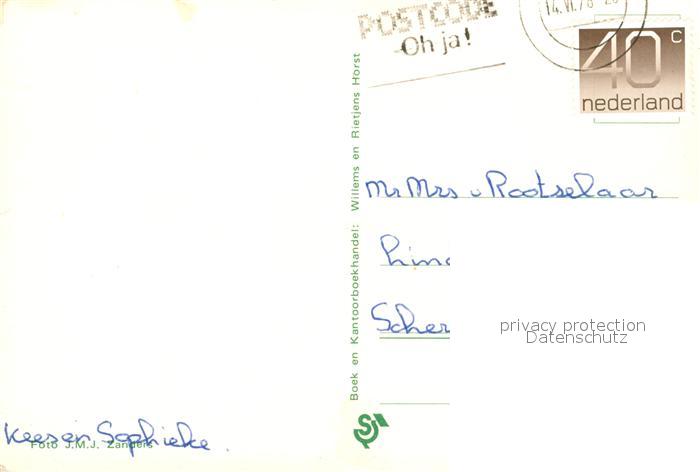 POSTCODE
Oh ja!
14.VI.78
40 c
nederland
Boek en Kantoorboekhandel: Willems en Rietjens Horst
Mr Mrs v Rootselaar
privacy protection
Datenschutz
Kees en Sophieke.
Foto J.M.J. Zanders